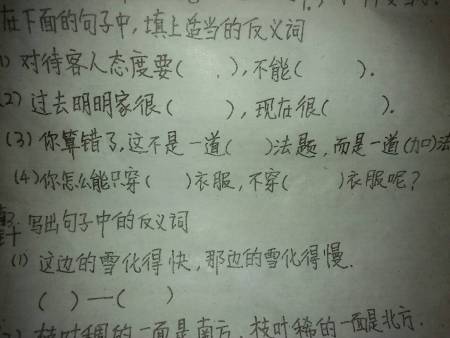 在下面的句子中,填上适当的反义词
1) 对待客人态度要(    ),不能(    ).
(2) 过去明明家很(    ),现在很(    ).
(3) 你算错了,这不是一道(    )法题,而是一道(加)法
(4) 你怎么能只穿(    )衣服,不穿(    )衣服呢?
写出句子中的反义词
(1) 这边的雪化得快,那边的雪化得慢.
(    )—(    )
枝叶稠的一面是南方,枝叶稀的一面是北方.